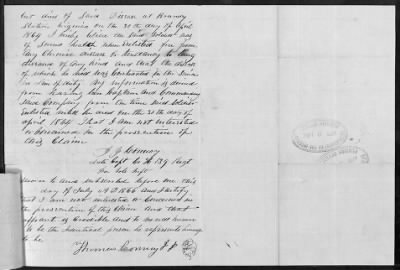 but died of said Disease at Brandy
Station Virginia on the 20th day of April
1864 I truly believe on said Soldier was
of Sound health when enlisted free from
any Chronic disease or tendency to any
disease of any kind and that the disease
of which he died was Contracted in the Service
in line of duty My information is derived
from having been Captain and Commanding
said Company from the time said Soldier
enlisted until he died on the 20th day of
April 1864 That I am not interested
or concerned in the prosecution of
this Claim
Late Capt Co H 139 Regt
Pa Vols
Sworn to and subscribed before me this
day of July A.D 1866 and I certify
that I am not interested or concerned in
the prosecution of this Claim and that
affiant is credible and to me well known
to be the identical person he represents himself
to be
Thomas Conway J P